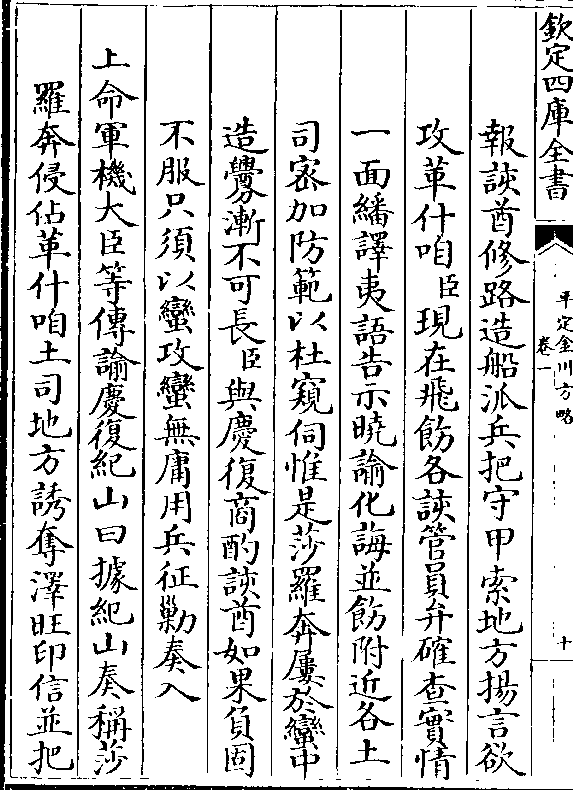 欽定四庫全書
平定金川方略
卷一
十
報該酋修路造船派兵把守甲索地方揚言欲
攻革什咱臣現在飛飭各該管員弁確查實情
一面繙譯夷語告示曉諭化誨並飭附近各土
司密加防範以杜窺伺惟是莎羅奔屢於蠻中
造釁漸不可長臣與慶復商酌該酋如果負固
不服只須以蠻攻蠻無庸用兵征勦奏入
上命軍機大臣等傳諭慶復紀山曰據紀山奏稱莎
羅奔侵佔革什咱土司地方誘奪澤旺印信並把